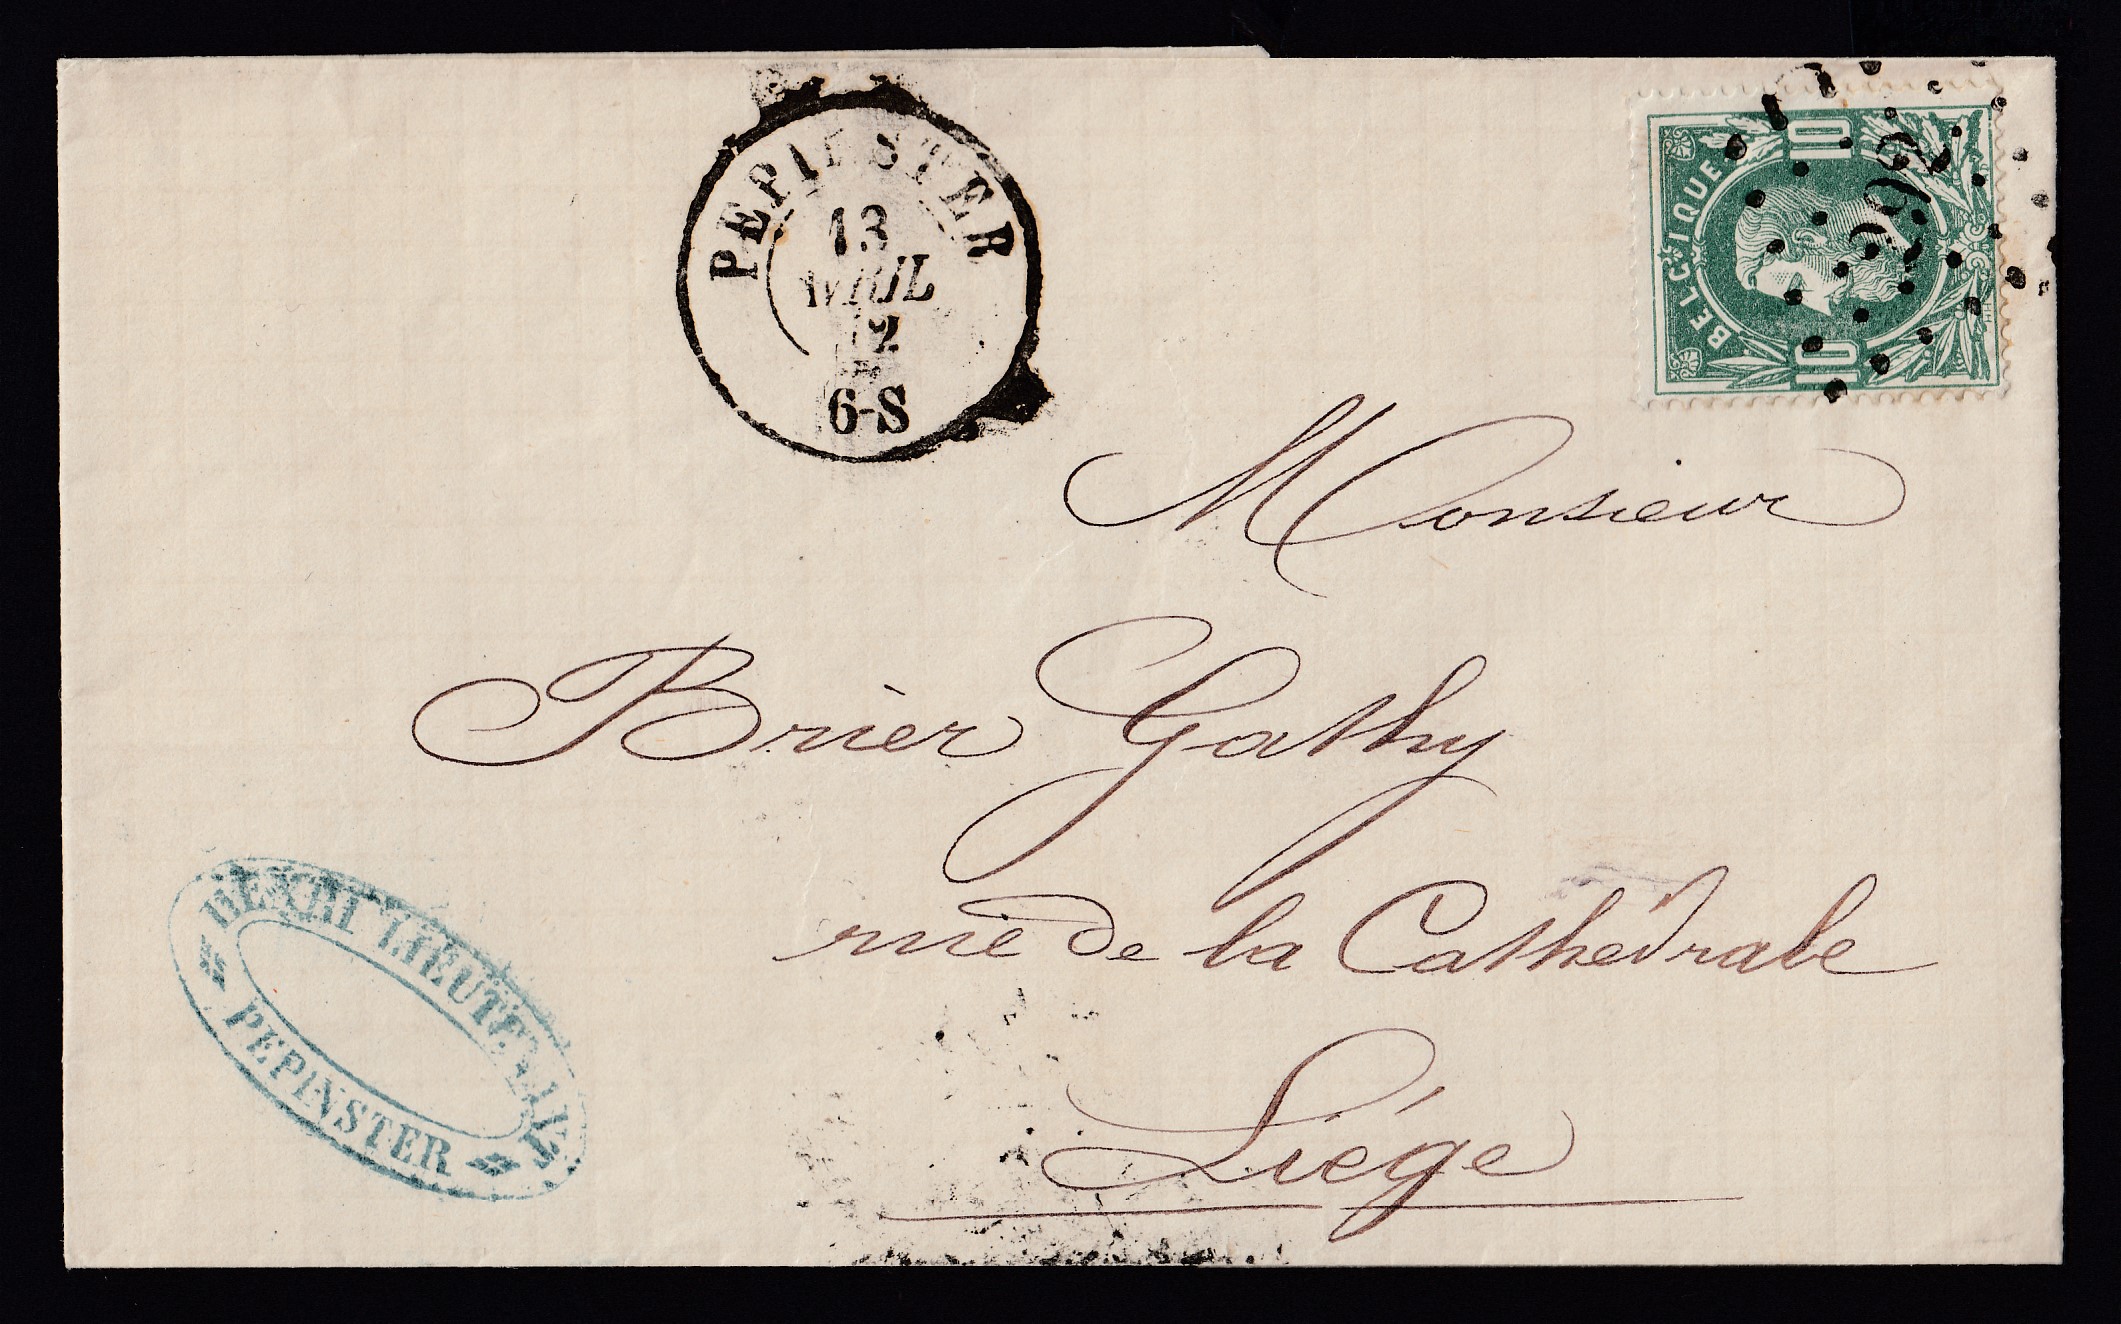 PEPINSTER
13
AVRIL
12
6-S
BELGIQUE
10
10
292
Monsieur
Brier Gathy
rue de la Cathédrale
Liége
HENRI LIEUTENANT
PEPINSTER